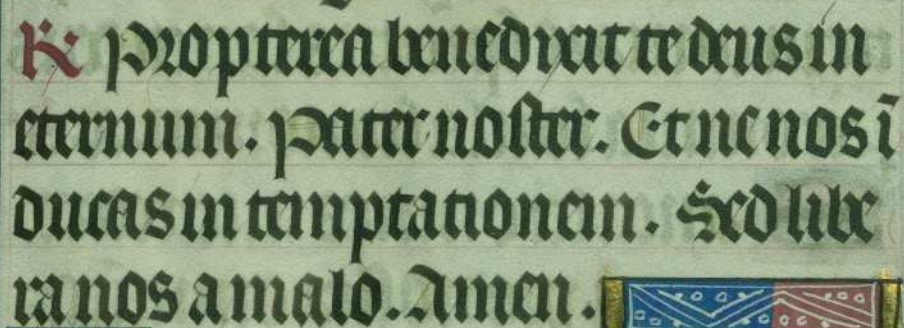 R Propterea benedixit te deus in
eternum. Pater noster. Et ne nos ī
ducas in temptationem. Sed libe
ra nos a malo. Amen.